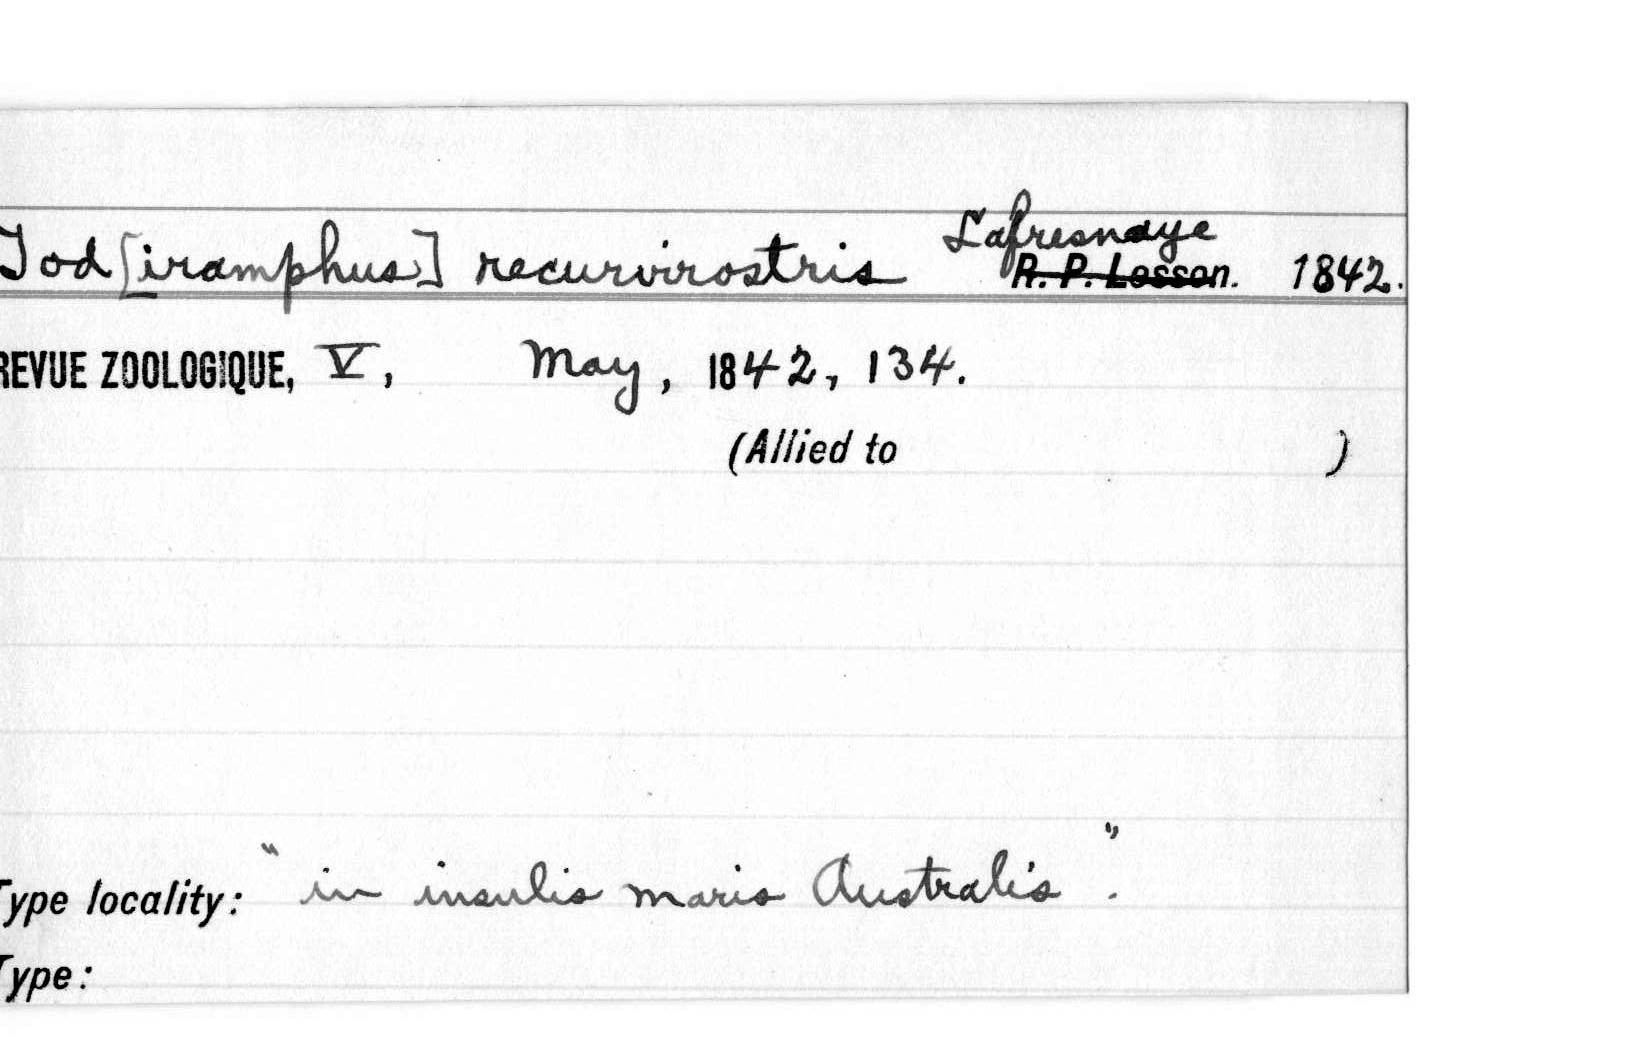 Tod[iramphus] recurvirostris Lafresnaye
R. P. Lesson. 1842.
REVUE ZOOLOGIQUE, V, May, 1842, 134.
(Allied to )
Type locality: "in insulis maris Australis".
Type: